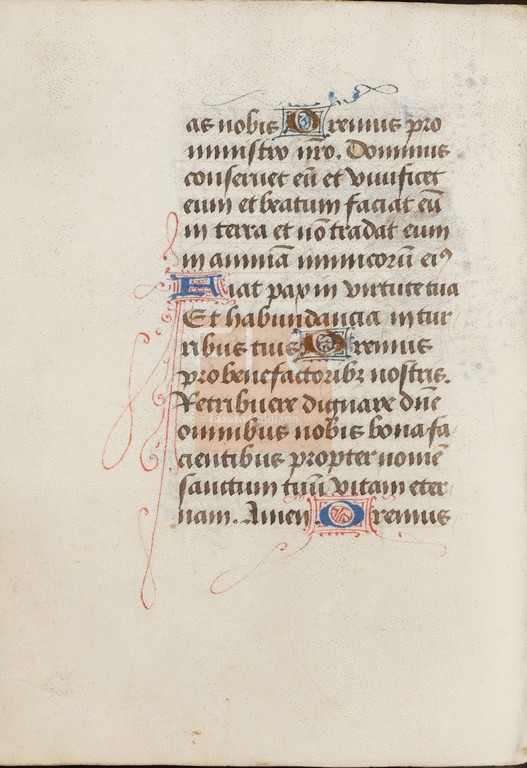 as nobis Oremus pro
ministro nr̄o. Dominus
conseruet eū et viuificet
eum et beatum faciat eū
in terra et nō tradat eum
in animā inimicorū eiꝰ
Fiat pax in virtute tua
Et habundancia in tur
ribus tuis Oremus
pro benefactoribꝫ nostris.
Retribuere dignare dn̄e
omnibus nobis bona fa
cientibus propter nomē
sanctum tuū vitam eter
nam. Amen. Oremus